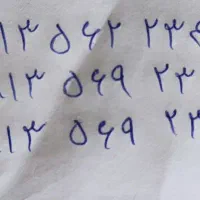 ۱۳ ۵۶۲ ۲۳
۱۳ ۵۶۹ ۲۳
۱۳ ۵۶۹ ۲۳